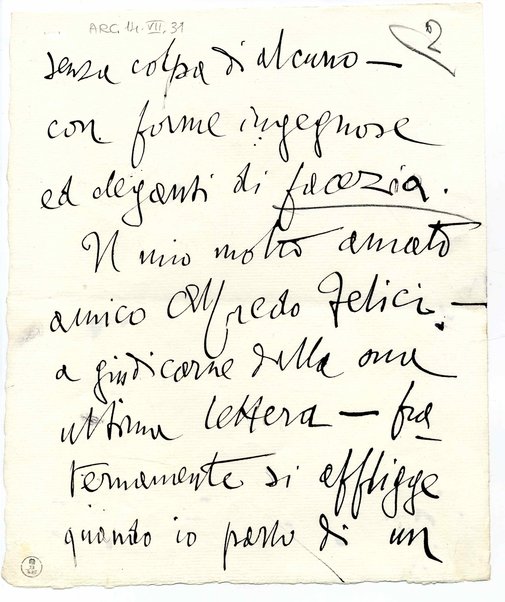 ARC. 14. VII. 31
2
senza colpa di alcuno —
con forme ingegnose
ed eleganti di facezia.
Il mio molto amato
amico Alfredo Felici —
a giudicarne dalla sua
ultima lettera — fra
ternamente si affligge
quando io parlo di un